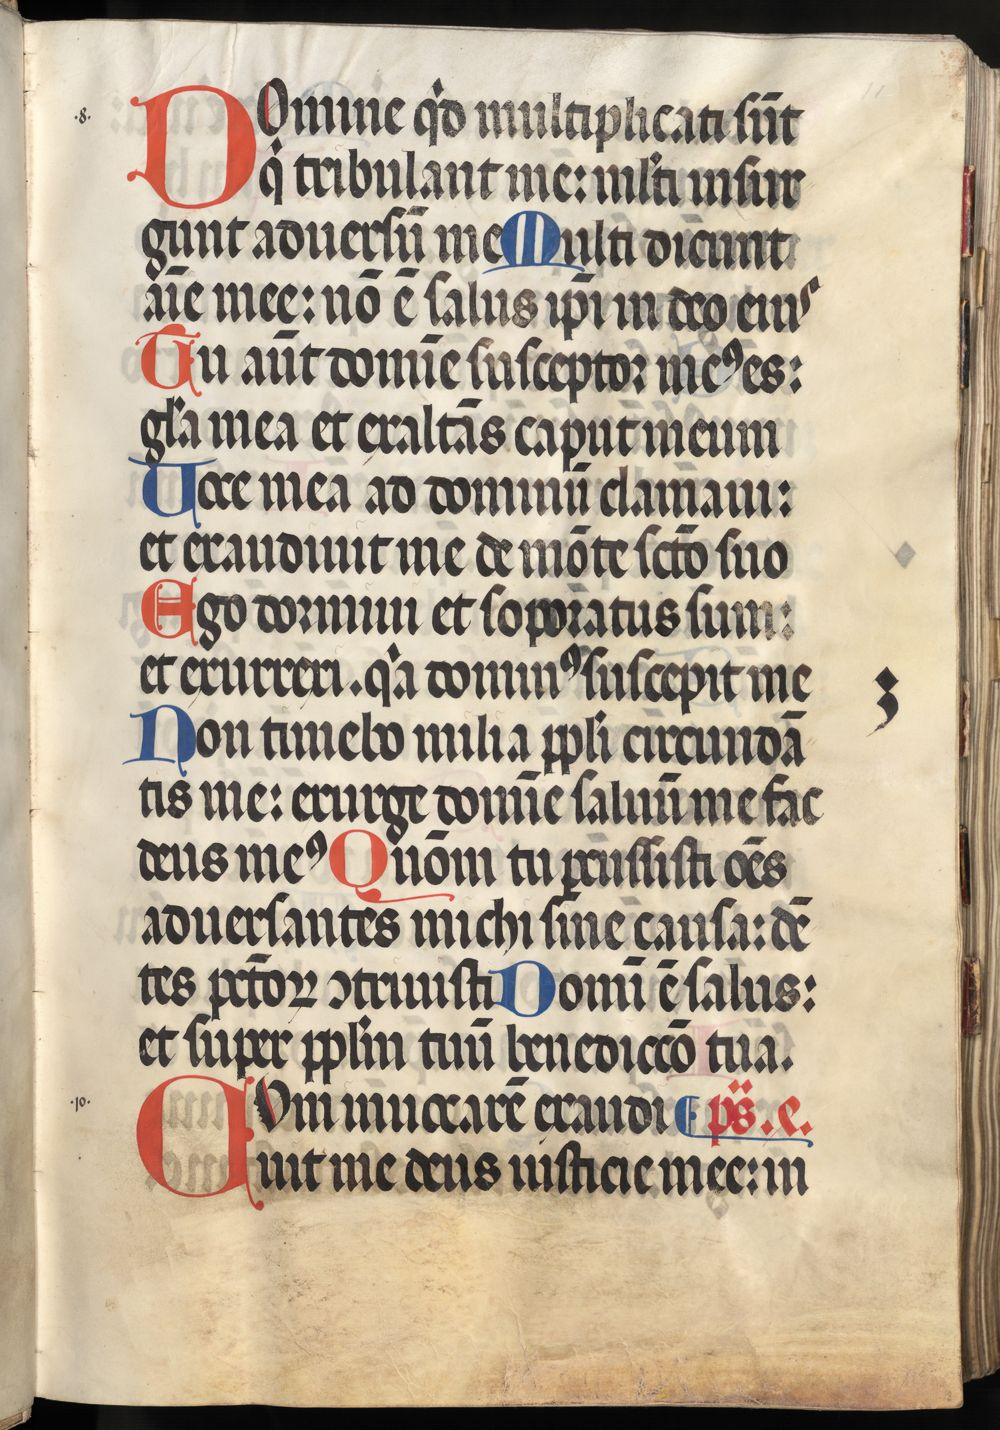 .8. Domine qͥd multiplicati sūt
qͥ tribulant me: mlti insur
gunt aduersū me Multi dicunt
aīe mee: nō ē salus ipi in deo eiuˢ
Tu aūt domīe susceptor meꝰ es:
gla mea et exaltās caput meum
Uoce mea ad dominū clamaui:
et exaudiuit me de mōte scto suo
Ego dormiui et soporatus sum:
et exurrexi. qͥa dominꝰ suscepit me
3
Non timebo milia ppli circundā
tis me: exurge domīe saluū me fac
deus meꝰ Quōm tu ꝑcussisti oēs
aduersantes michi sine causa: dē
tes pctōꝝ ↄtriuisti Domī ē salus:
et super pplm tuū benediccō tua.
.10. Cum inuocarē exaudi ps. e.
uit me deus iusticie mee: in